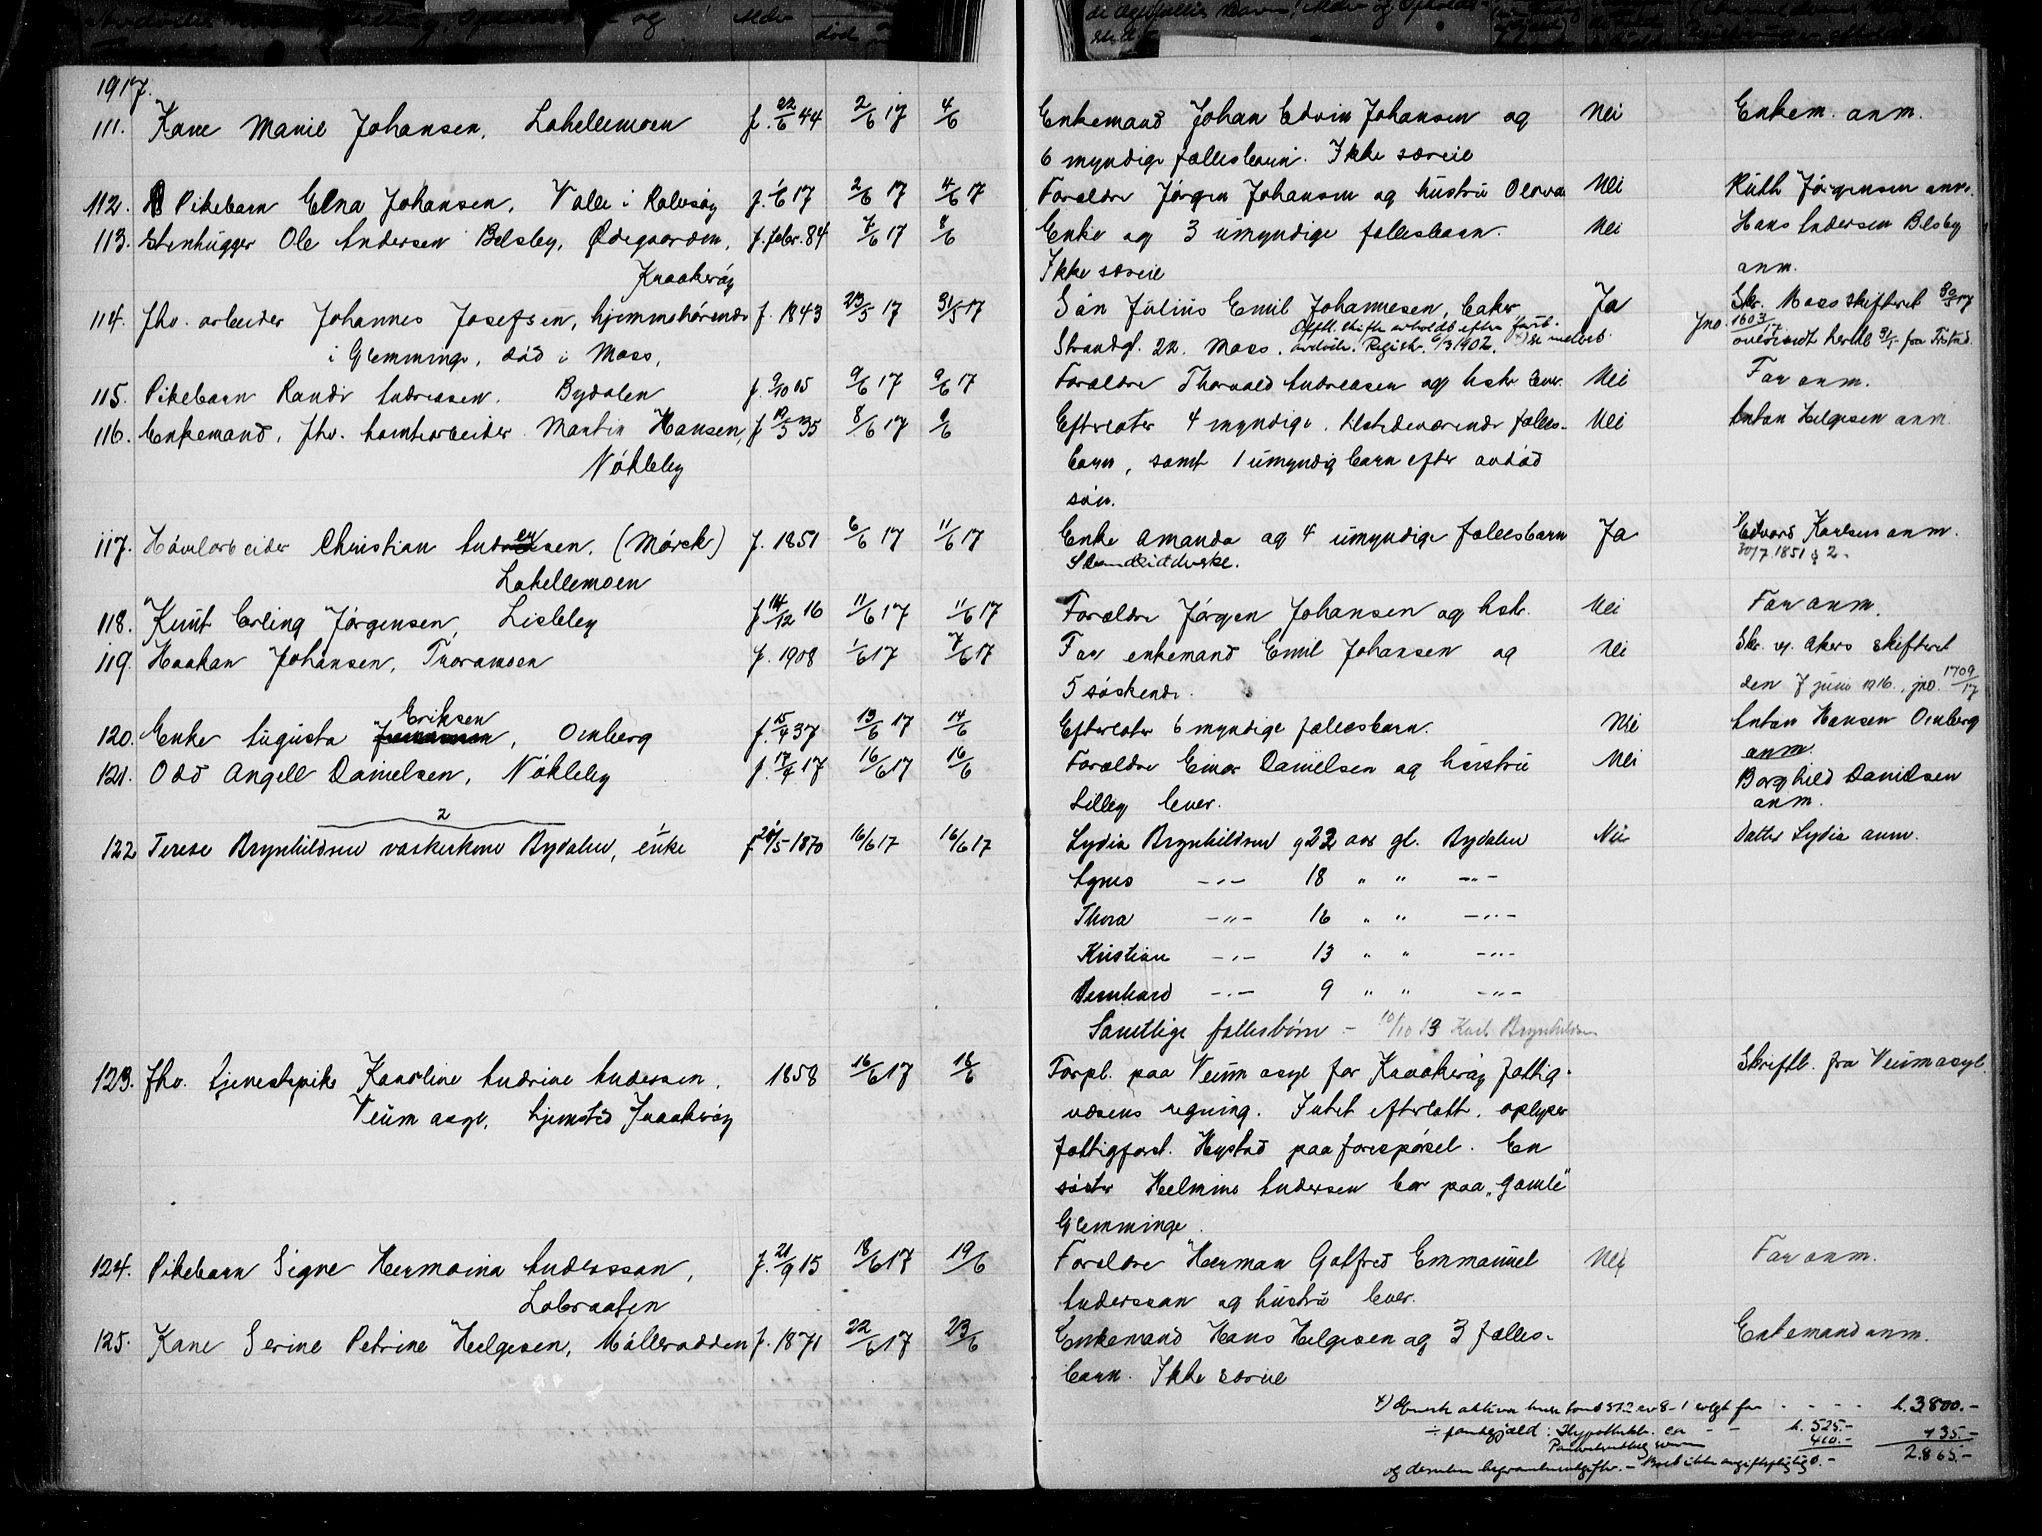 1917.
111. Kone Marie Johansen, Lahellemoen f. 22/6 44 2/6 17 4/6 Enkemand Johan Edvin Johansen og Nei Enkem. anm.
6 myndige fællesbarn. Ikke særeie
112. Pikebarn Elna Johansen, Valle i Rolvsøy f. 1/6 17 2/6 17 4/6 17 Forældre Jørgen Johansen og hustru Nei Ruth Jørgensen anm.
113. Stenhugger Ole Andersen Belsby, Ødegaarden, f. febr. 84 7/6 17 8/6 Enke og 3 umyndige fællesbarn. Nei Hans Andersen Belsby
Kraakerøy Ikke særeie anm.
114. fhv. arbeider Johannes Josefsen, hjemmehørende f. 1843 23/5 17 31/5 17 Søn Julius Emil Johannesen, Ja Skr. Moss skifteret 30/5 17
i Glemminge, død i Moss, Strandgt. 22. Moss. Registr. 6/3 1902. jno. 1603/17
115. Pikebarn Randi Andreasen. Bydalen f. 9/10 15 9/6 17 9/6 17 Forældre Thorvald Andreasen og hstr. lever. Nei Far anm.
116. Enkemand, fhv. tomtearbeider Martin Hansen, f. 19/3 35 8/6 17 9/6 Efterlater 4 myndige, tilstedeværende fælles- Nei Anton Helgesen anm.
Nøkleby barn, samt 1 umyndig barn efter avdød
søn.
117. Høvlarbeider Christian Andersen. (Mørck) f. 1851 6/6 17 11/6 17 Enke Amanda og 4 umyndige fællesbarn Ja Edvard Karlsen anm.
Lahellemoen 30/7 1851 § 2.
118. Knut Erling Jørgensen, Lisleby f. 14/12 16 11/6 17 11/6 17 Forældre Jørgen Johansen og hstr. Nei Far anm.
119. Haakon Johansen, Thoramoen f. 1908 1/6 17 7/6 17 Far enkemand Emil Johansen og Nei Skr. v. Akers skifteret
5 søskende. den 7 juni 1916, jno. 1709/17
120. Enke Augusta Eriksen, Omberg f. 15/4 37 13/6 17 14/6 Efterlater 6 myndige fællesbarn. Nei Anton Hansen Omberg
anm.
121. Odd Angell Danielsen, Nøkleby f. 17/4 17 16/6 17 16/6 Forældre Einar Danielsen og hustru Nei Borghild Danielsen
Lilley lever. anm.
2 1
122 Terese Brynhildsen vaskekone Bydalen, enke f 26/5 1870 16/6 17 16/6 17 Lydia Brynhildsen 22 aar gl. Bydalen Nei Datter Lydia anm.
Agnes -"- 18 " " -"-
Thora -"- 16 " " -"-
Kristian -"- 13 " " -"-
Bernhard -"- 9 " " -"-
Samtlige fællesbørn - 10/10 13 Karl Brynhildsen
123. fhv. tjenestepike Karoline Andrine Andersen, 1858 16/6 17 18/6 Forpl. paa Veum asyl for Kraakerøy fattig- Skriftl. fra Veum asyl
Veum asyl, hjemsted Kraakerøy væsens regning. Intet efterlatt, oplyser
fattigforst. Hystad paa forespørsel. En
søster Helmine Andersen bor paa "gamle"
Glemminge.
124. Pikebarn Signe Hermoina Andersson, f. 21/9 15 18/6 17 19/6 Forældre Herman Golfred Emmanuel Nei Far anm.
Labraaten Andersson og hustru lever.
125. Kone Serine Petrine Helgesen, Mølleradden f. 1871 22/6 17 23/6 Enkemand Hans Helgesen og 3 fælles- Enkemand anm.
barn. Ikke særeie
- - - - k. 3800.-
÷ pantegjæld: k. 525.-
410.- 935.-
2.865.-